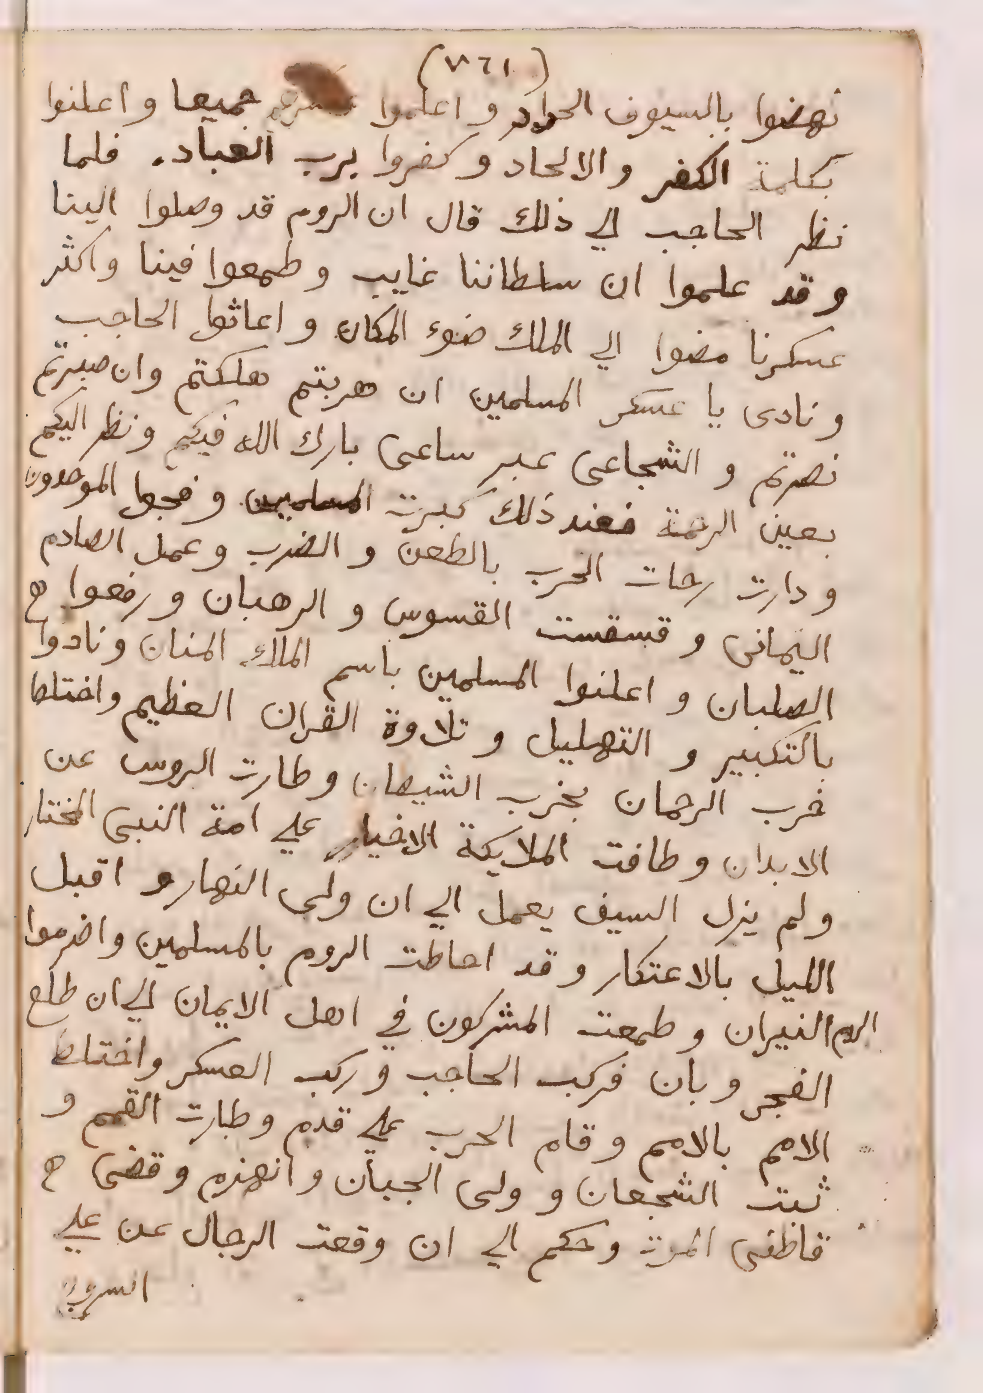 (٧٦١)
نهضوا بالسيوف الحداد و اعلموا جميعا و اعلنوا
بكلمة الكفر و الالحاد و كفروا برب العباد. فلما
نظر الحاجب الي ذلك قال ان الروم قد وصلوا الينا
و قد علموا ان سلطاننا غايب و طمعوا فينا واكثر
عسكرنا مضوا الي الملك ضوء المكان و اعاثوا الحاجب
و نادى يا عسكر المسلمين ان هربتم هلكتم وان صبرتم
نصرتم و الشجاعى عبر ساعى بارك الله فيكم ونظر اليكم
بعين الرحمة فعند ذلك كبرت المسلمين وفجوا الموحدون
و دارت رحات الحرب بالطعن و الضرب وعمل الصادم
اليمانى و قسقست القسوس و الرهبان و رفعوا ح
الصلبان و اعلنوا المسلمين باسم الملك المنان ونادوا
بالتكبير و التهليل و تلاوة القران العظيم واختلط
خرب الرحمان بخرب الشيطان و طارت الروس عن
الابدان و طافت الملايكة الاخيار علي امة النبى المختار
ولم يزل السيف يعمل الي ان ولى النهار و اقبل
الليل بالاعتكار و قد احاطت الروم بالمسلمين واضرموا
الروم النيران و طمعت المشركون في اهل الايمان الي ان طلع
الفجر و بان فركب الحاجب و ركب العسكر واختلط
الامم بالامم و قام الحرب علي قدم و طارت القمم و
ثبت الشجعان و ولى الجبان و انهزم و قضى ح
قاطفى الموت و حكم الي ان وقعت الرجال عن علي
السروج